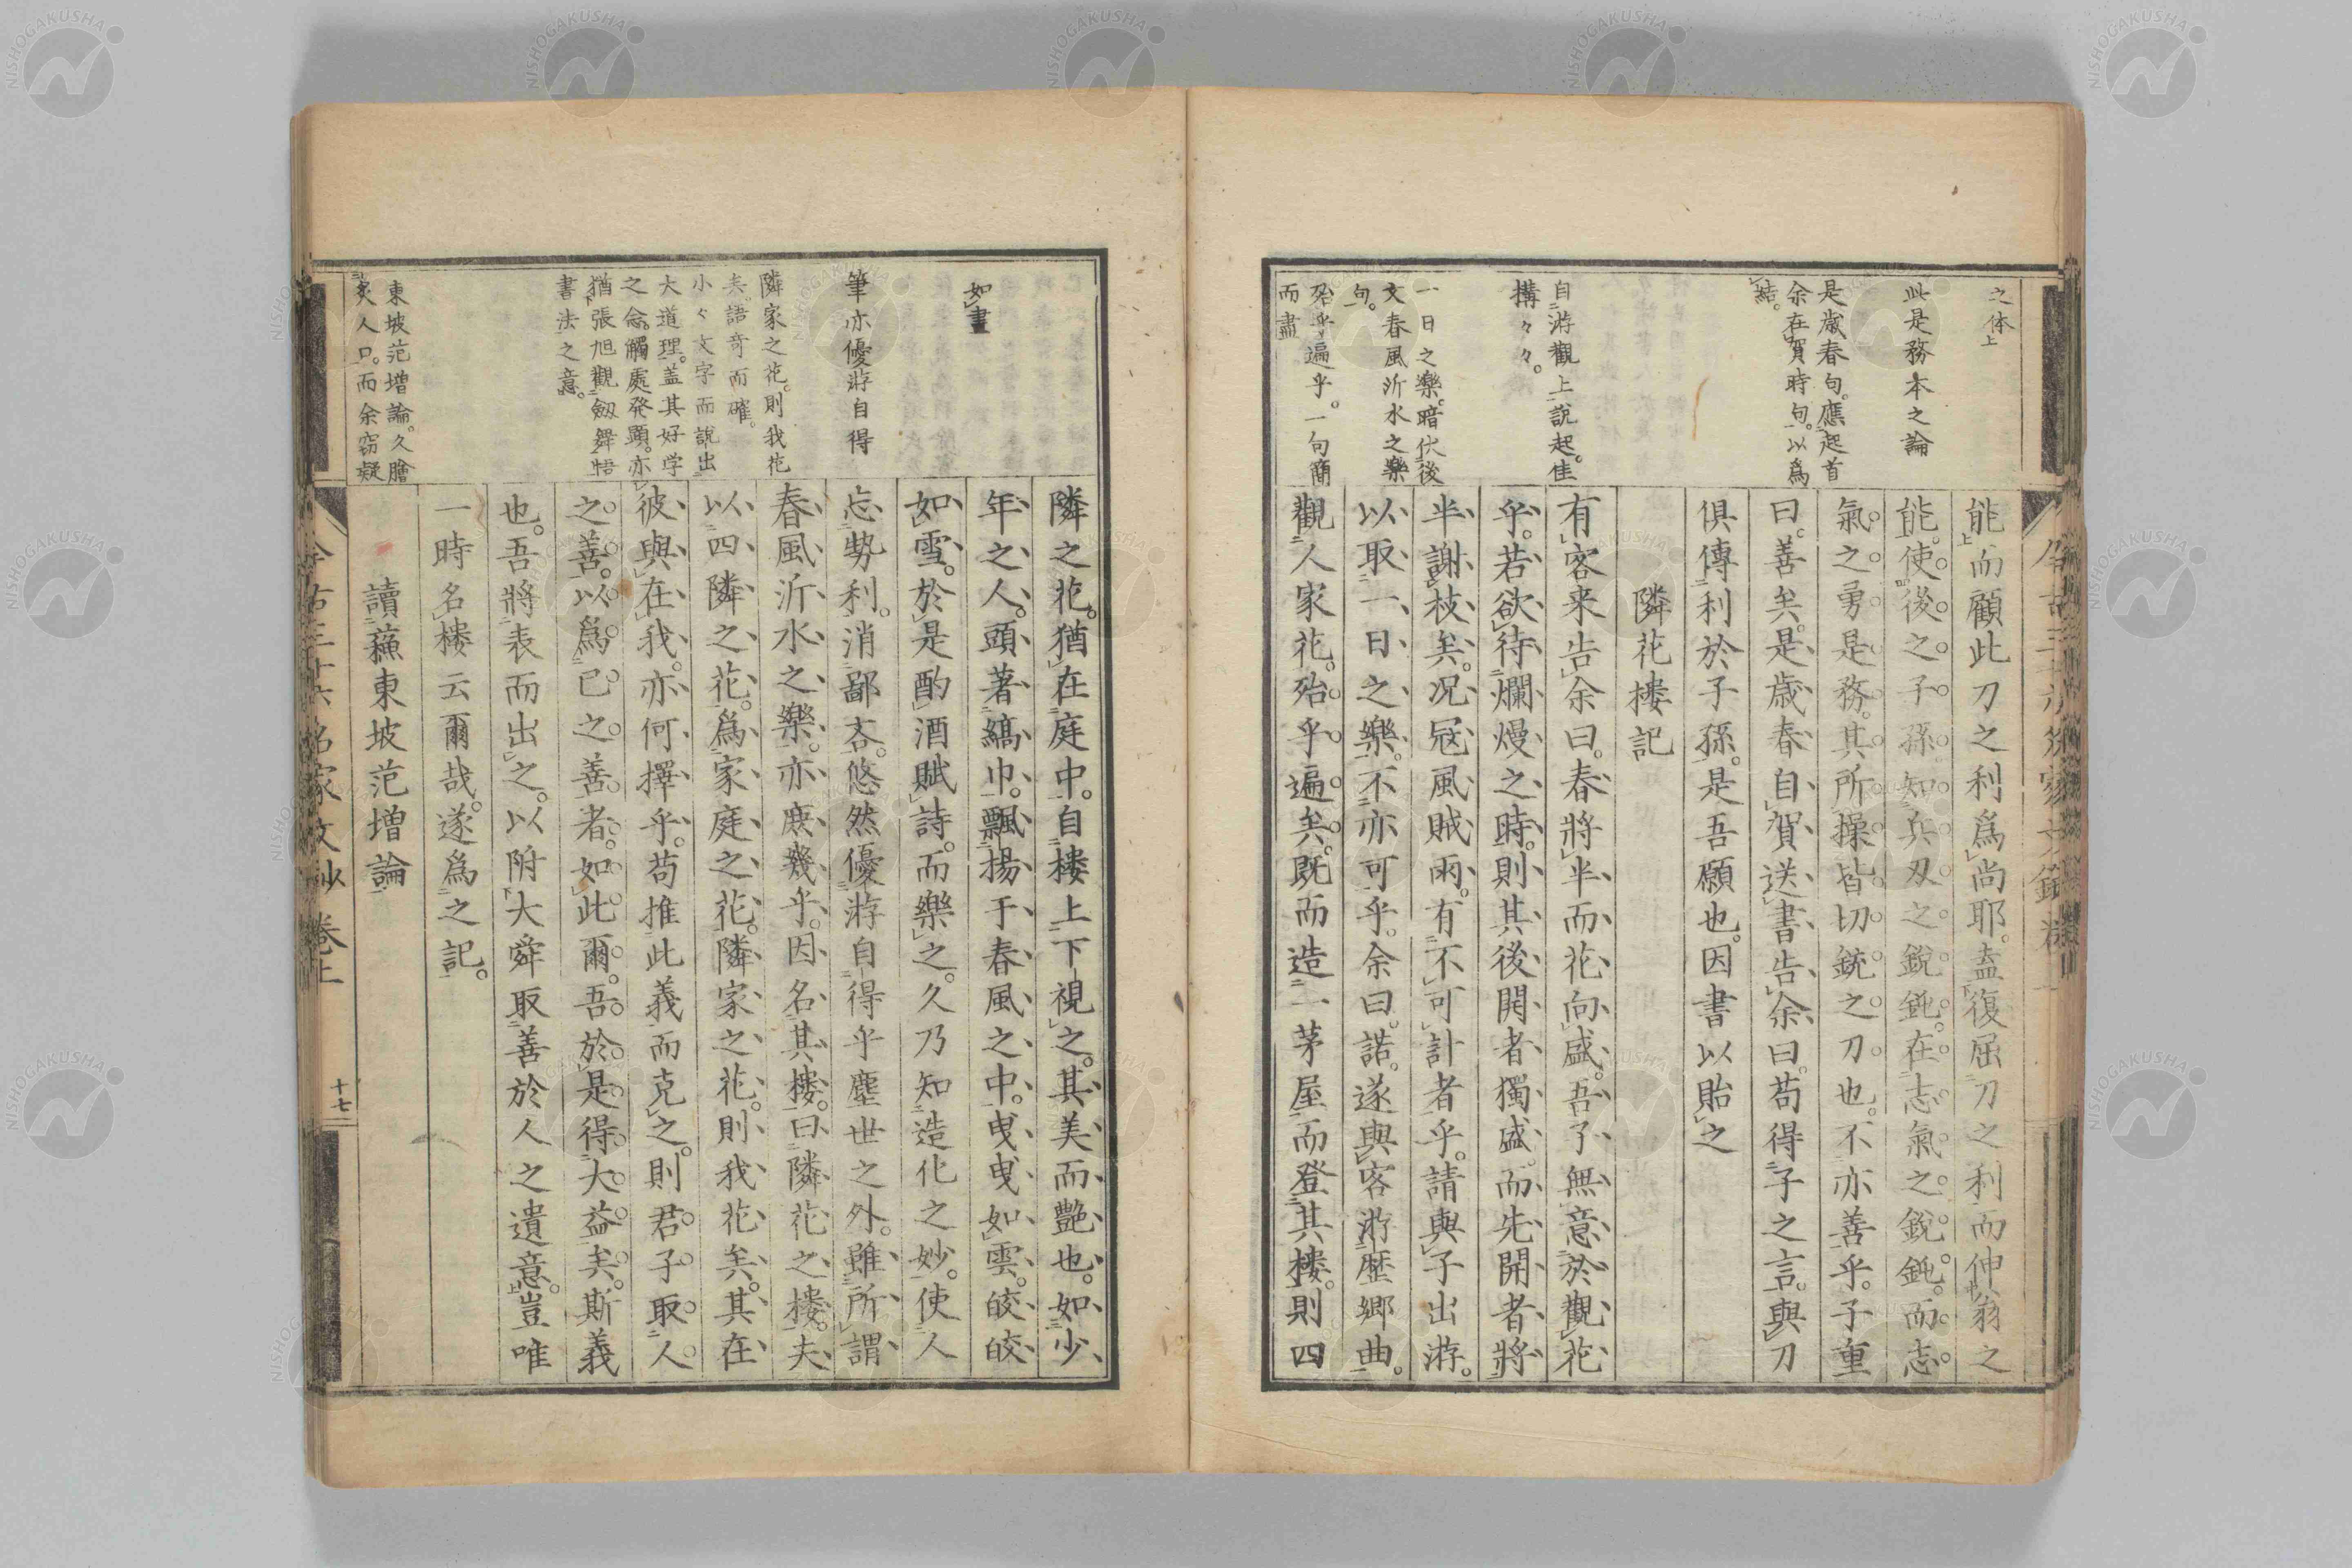 之体上
此是務本之論
是歲春句。應起首
余在賀時句。以爲
結。
自游觀上說起。佳
搆々々。
一日之樂。暗伏後
文春風沂水之樂
句。
殆乎遍乎。一句簡
而盡
能而顧此刀之利爲尚耶。盍復屈刀之利而伸翁之
能。使後之子孫知兵刃之銳鈍。在志氣之銳鈍。而志
氣之勇是務。其所操皆切銃之刀也。不亦善乎。子重
曰。善矣。是歲春自賀送書告余曰。苟得子之言。與刀
俱傳利於子孫。是吾願也。因書以貽之
隣花楼記
有客来告余曰。春將半而花向盛。吾子無意於觀花
乎。若欲待爛熳之時。則其後開者獨盛。而先開者將
半謝枝矣。况冦風賊雨。有不可計者乎。請與子出游。
以取一日之樂。不亦可乎。余曰。諾。遂與客游歷郷曲。
觀人家花。殆乎遍矣。既而造一茅屋而登其樓。則四
如畫
筆亦優游自得
隣家之花。則我花
矣。語奇而確。
小々文字而說出
大道理。盖其好学
之念。觸處発顕。亦
猶張旭觀劔舞悟
書法之意。
東坡范増論。久膾
炙人口。而余窃疑
隣之花。猶在庭中。自楼上下視之。其美而艷也。如少
年之人。頭著縞巾。飄揚于春風之中。曳曳如雲。皎皎
如雪。於是酌酒賦詩。而樂之。久乃知造化之妙。使人
忘勢利。消鄙吝。悠然優游自得乎塵世之外。雖所謂
春風沂水之樂。亦庶幾乎。因名其楼。曰隣花之楼。夫
以四隣之花。爲家庭之花。隣家之花。則我花矣。其在
彼與在我。亦何擇乎。苟推此義而克之。則君子取人
之善。以爲己之善者。如此爾。吾於是得大益矣。斯義
也。吾將表而出之。以附大舜取善於人之遺意。豈唯
一時名楼云爾哉。遂爲之記。
讀蘓東坡范増論
今古三十六名家文抄 卷上
十七
NISHOGAKUSHA